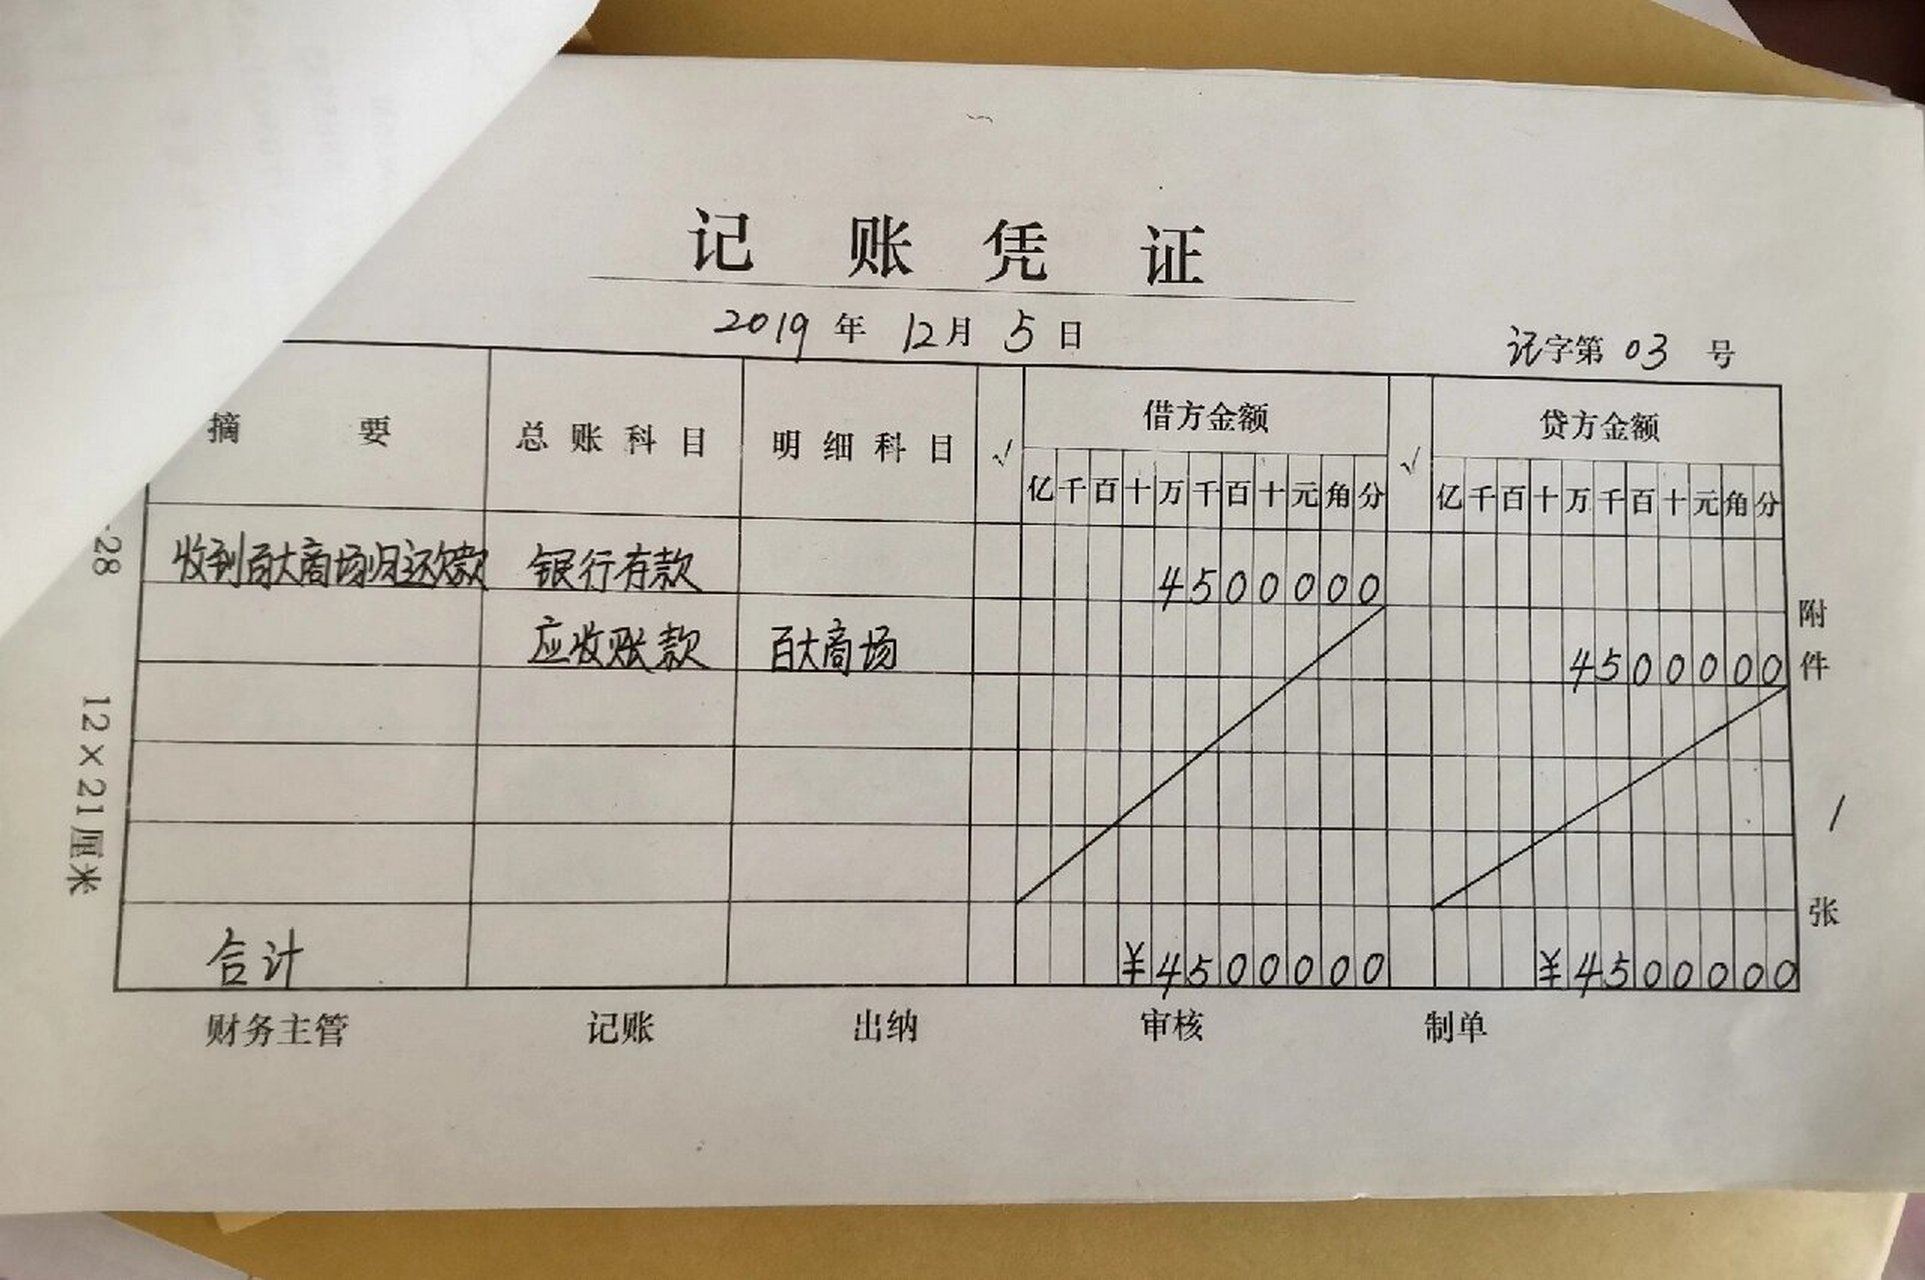 记账凭证
2019年12月5日
记字第03号
摘要 总账科目 明细科目 √ 借方金额 √ 贷方金额
亿千百十万千百十元角分 亿千百十万千百十元角分
收到百大商场归还欠款 银行存款 4500000
应收账款 百大商场 4500000
合计 ¥4500000 ¥4500000
附件 1 张
财务主管 记账 出纳 审核 制单
-28 12×21厘米